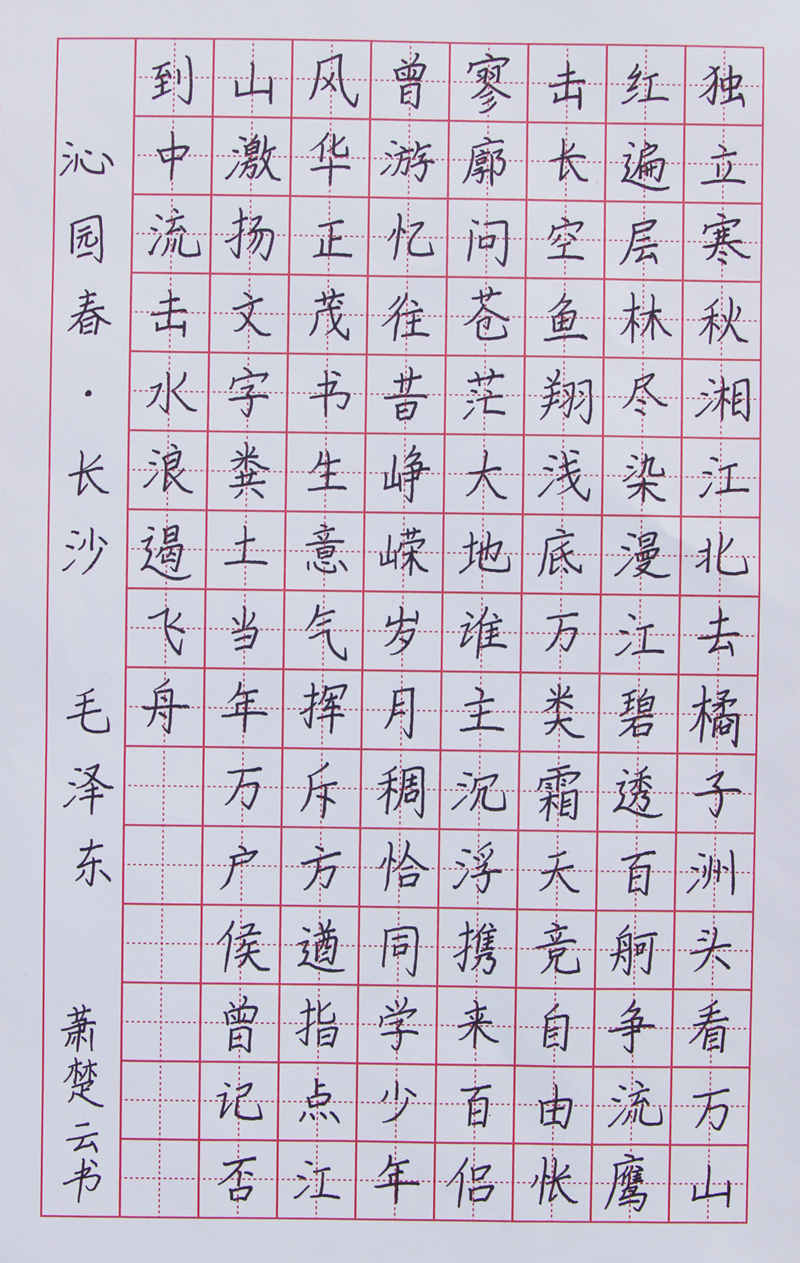 独立寒秋湘江北去橘子洲头看万山
红遍层林尽染漫江碧透百舸争流鹰
击长空鱼翔浅底万类霜天竞自由怅
寥廓问苍茫大地谁主沉浮携来百侣
曾游忆往昔峥嵘岁月稠恰同学少年
风华正茂书生意气挥斥方遒指点江
山激扬文字粪土当年万户侯曾记否
到中流击水浪遏飞舟
沁园春·长沙 毛泽东 萧楚云书